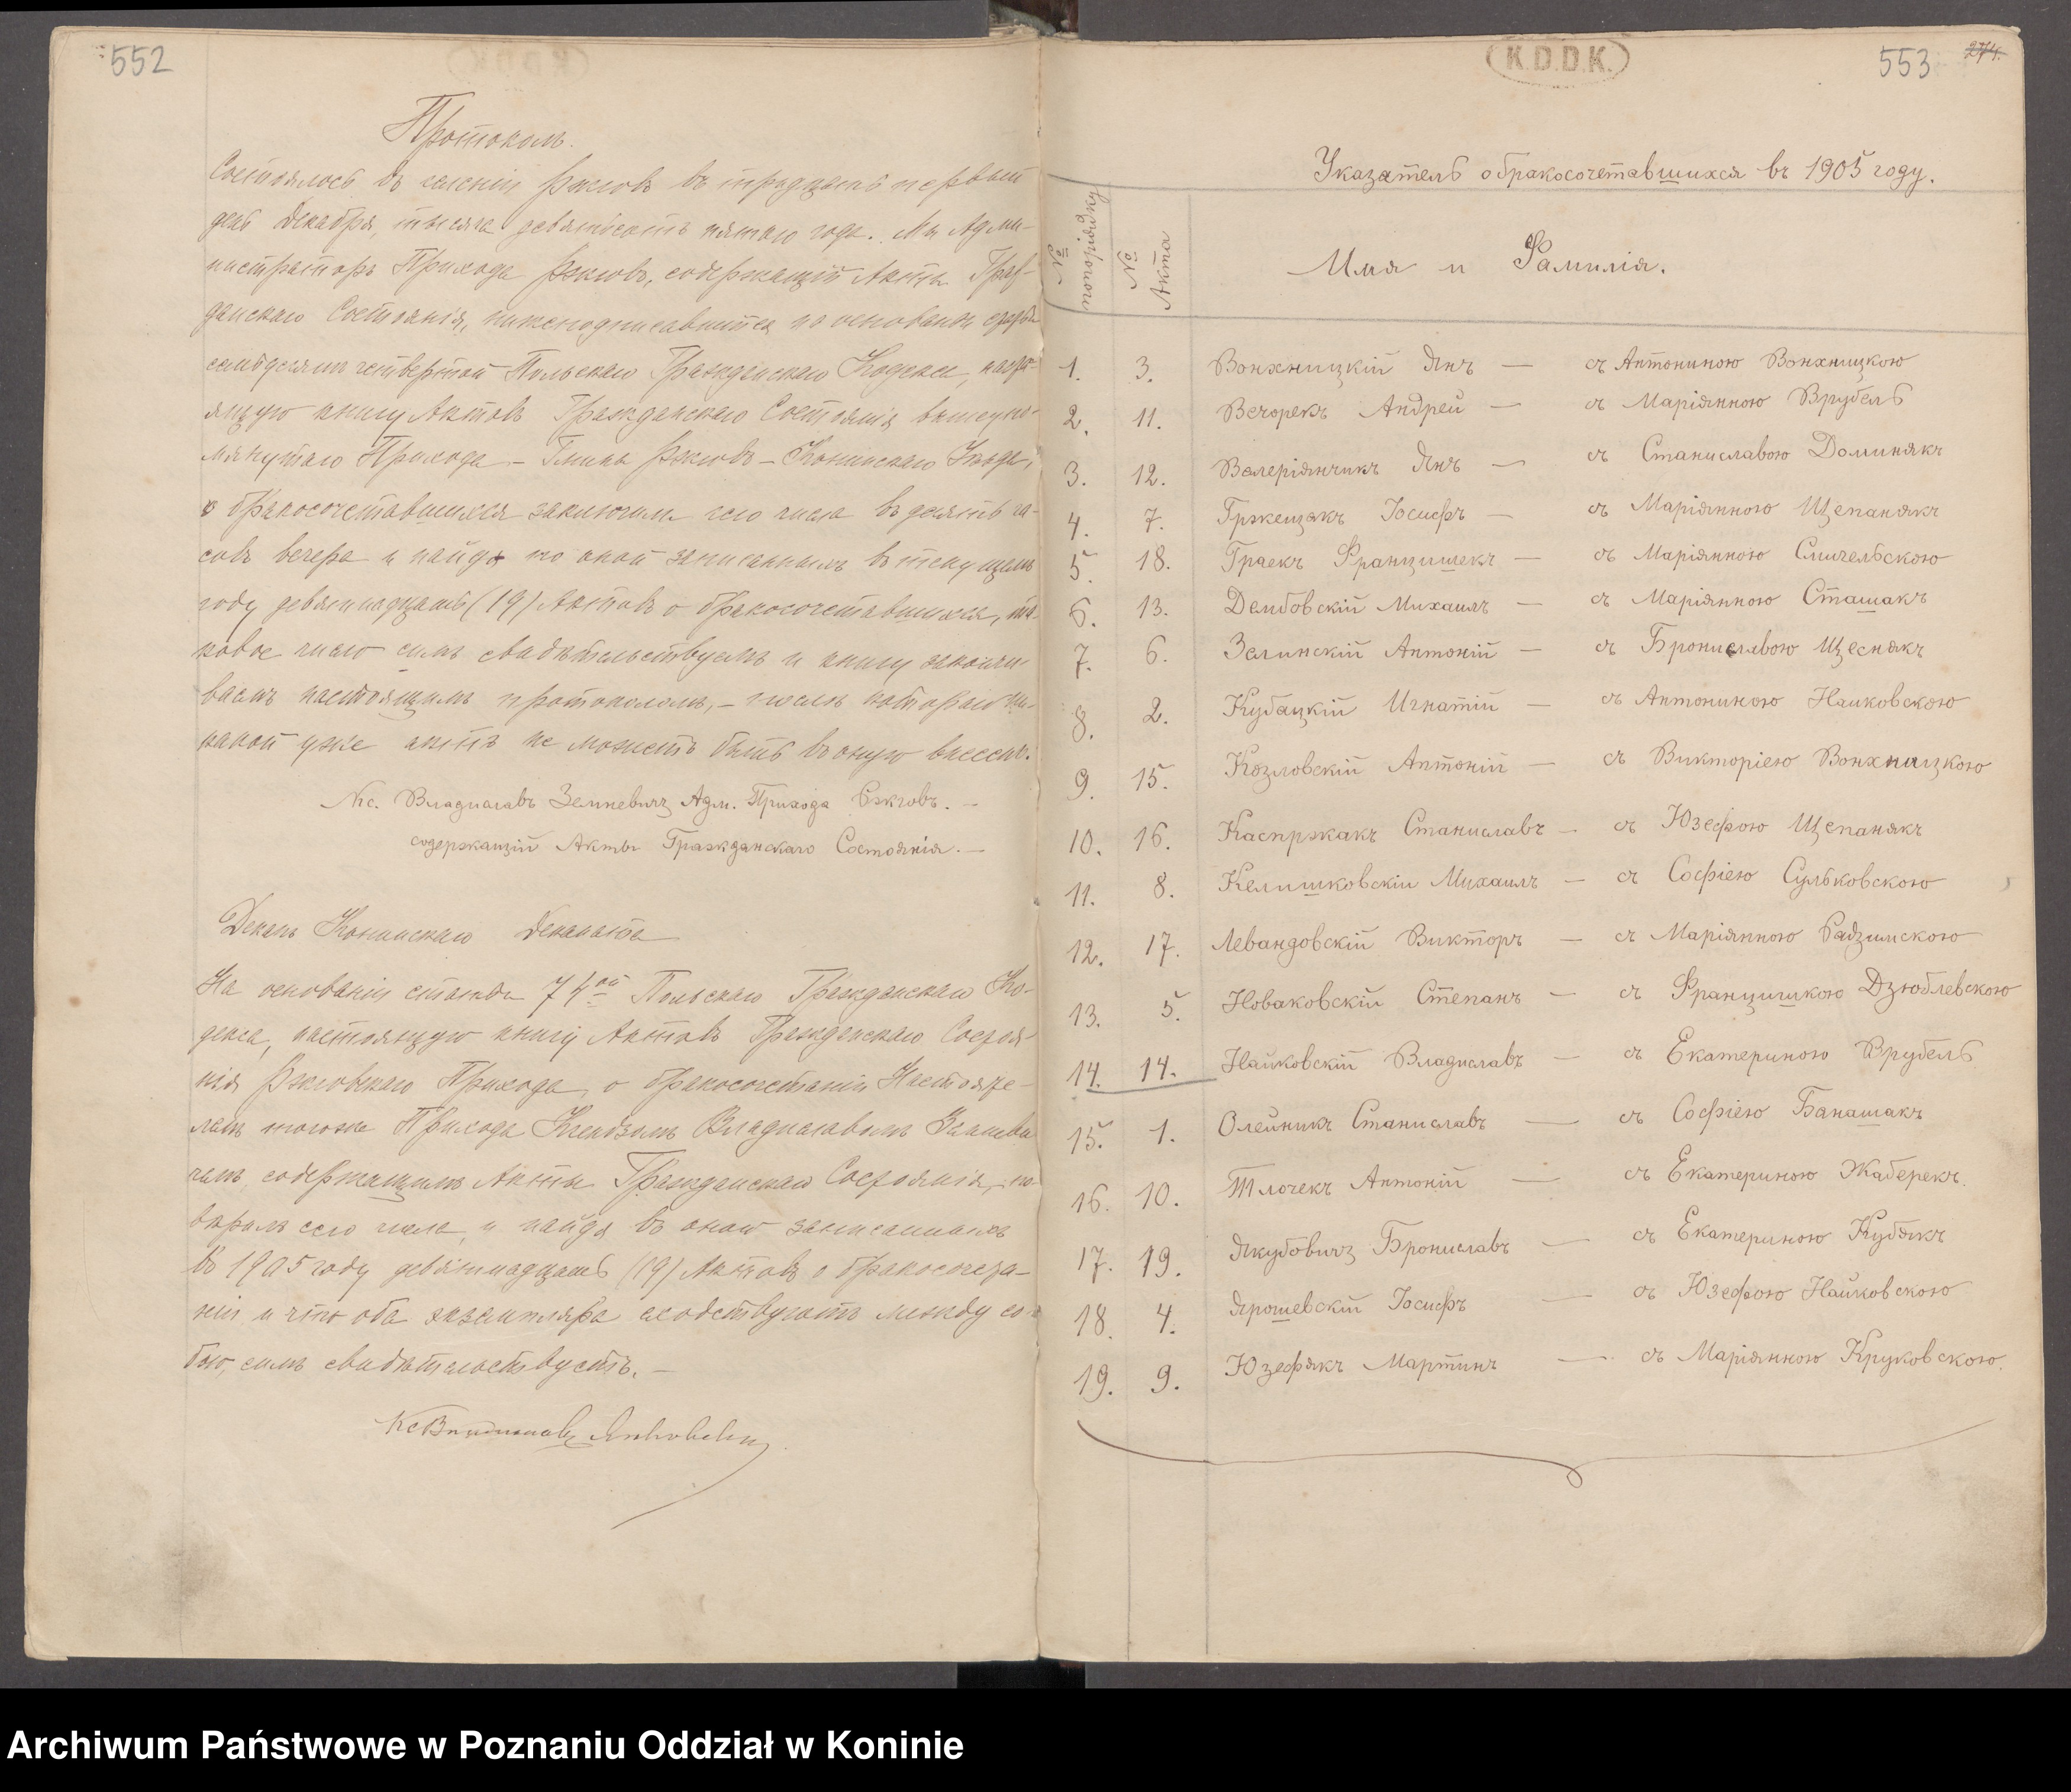 552
Протоколъ.
Состоялось въ селеніи Ржговъ въ тридцать первый
день Декабря, тысяча девятьсотъ пятаго года. Мы Адми-
нистраторъ Прихода Ржговъ, содержащій Акты Граж-
данскаго Состоянія, нижеподписавшійся на основаніи статьи
семьдесятъ четвертой Польскаго Гражданскаго Кодекса, насто-
ящую книгу Актовъ Гражданскаго Состоянія вышеупо-
мянутаго Прихода – Гмины Ржговъ – Конинскаго Уѣзда,
о бракосочетавшихся заключили сего числа въ девять ча-
совъ вечера и найдя по оной записанныхъ въ текущемъ
году девятнадцать (19) Актовъ о бракосочетавшихся, та-
ковое число симъ свидѣтельствуемъ и книгу закончи-
ваемъ настоящимъ протоколомъ, – послѣ котораго ни-
какой уже актъ не можетъ быть въ оную внесенъ.
Кс. Владиславъ Адм. Прихода Ржговъ. –
содержащій Акты Гражданскаго Состоянія. –
Деканъ Конинскаго Деканата
На основаніи статьи 74ой Польскаго Гражданскаго Ко-
декса, настоящую книгу Актовъ Гражданскаго Состоя-
нія Ржговскаго Прихода, о бракосочетаніи Настояте-
лемъ тогоже Прихода Ксендзомъ Владиславомъ
чемъ, содержащимъ Акты Гражданскаго Состоянія, по-
вѣрилъ сего числа, и найдя въ оной записанныхъ
въ 1905 году девятнадцать (19) Актовъ о бракосочета-
ніи и что оба экземпляра сходствуютъ между со-
бою, симъ свидѣтельствуетъ. –
Кс
K.D.D.K.
553
274.
Указатель обракосочетавшихся въ 1905 году.
№ попорядку
№ Акта
Имя и Фамилія.
1. 3. Вонхницкій Янъ — съ Антониною Вонхницкою
2. 11. Вечорекъ Андрей — съ Маріянною Врубель
3. 12. Валеріянчикъ Янъ — съ Станиславою Доминякъ
4. 7. Гржещакъ Іосифъ — съ Маріянною Щепанякъ
5. 18. Граекъ Францишекъ — съ Маріянною Смичельскою
6. 13. Дембовскій Михаилъ — съ Маріянною Сташакъ
7. 6. Зелинскій Антоній — съ Брониславою Щеснякъ
8. 2. Кубацкій Игнатій — съ Антониною Найковскою
9. 15. Козловскій Антоній — съ Викторіею Вонхницкою
10. 16. Каспржакъ Станиславъ — съ Юзефою Щепанякъ
11. 8. Келишковскій Михаилъ — съ Софіею Сульковскою
12. 17. Левандовскій Викторъ — съ Маріянною Радзимскою
13. 5. Новаковскій Степанъ — съ Францишкою Дзюблевскою
14. 14. Найковскій Владиславъ — съ Екатериною Врубель
15. 1. Олейникъ Станиславъ — съ Софіею Банашакъ
16. 10. Тлочекъ Антоній — съ Екатериною Жаберекъ.
17. 19. Якубовичъ Брониславъ — съ Екатериною Кубякъ
18. 4. Ярошевскій Іосифъ — съ Юзефою Найковскою
19. 9. Юзефякъ Мартинъ — съ Маріянною Круковскою.
Archiwum Państwowe w Poznaniu Oddział w Koninie